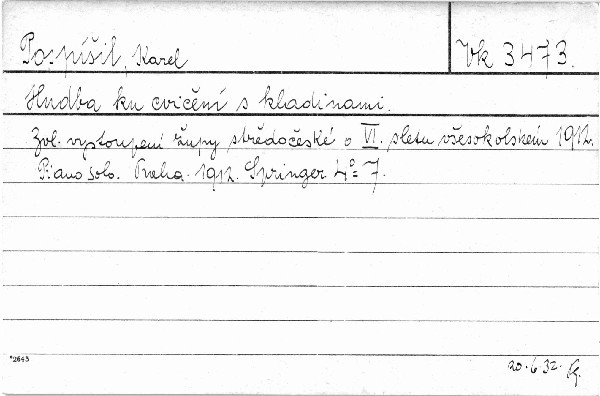 Pospíšil, Karel
Vk 3473.
Hudba ku cvičení s kladinami.
Zvl. vystoupení župy středočeské o VI. sletu všesokolském 1912.
Piano solo. Praha. 1912. Springer 4° 7.
*2643
20.6.32.